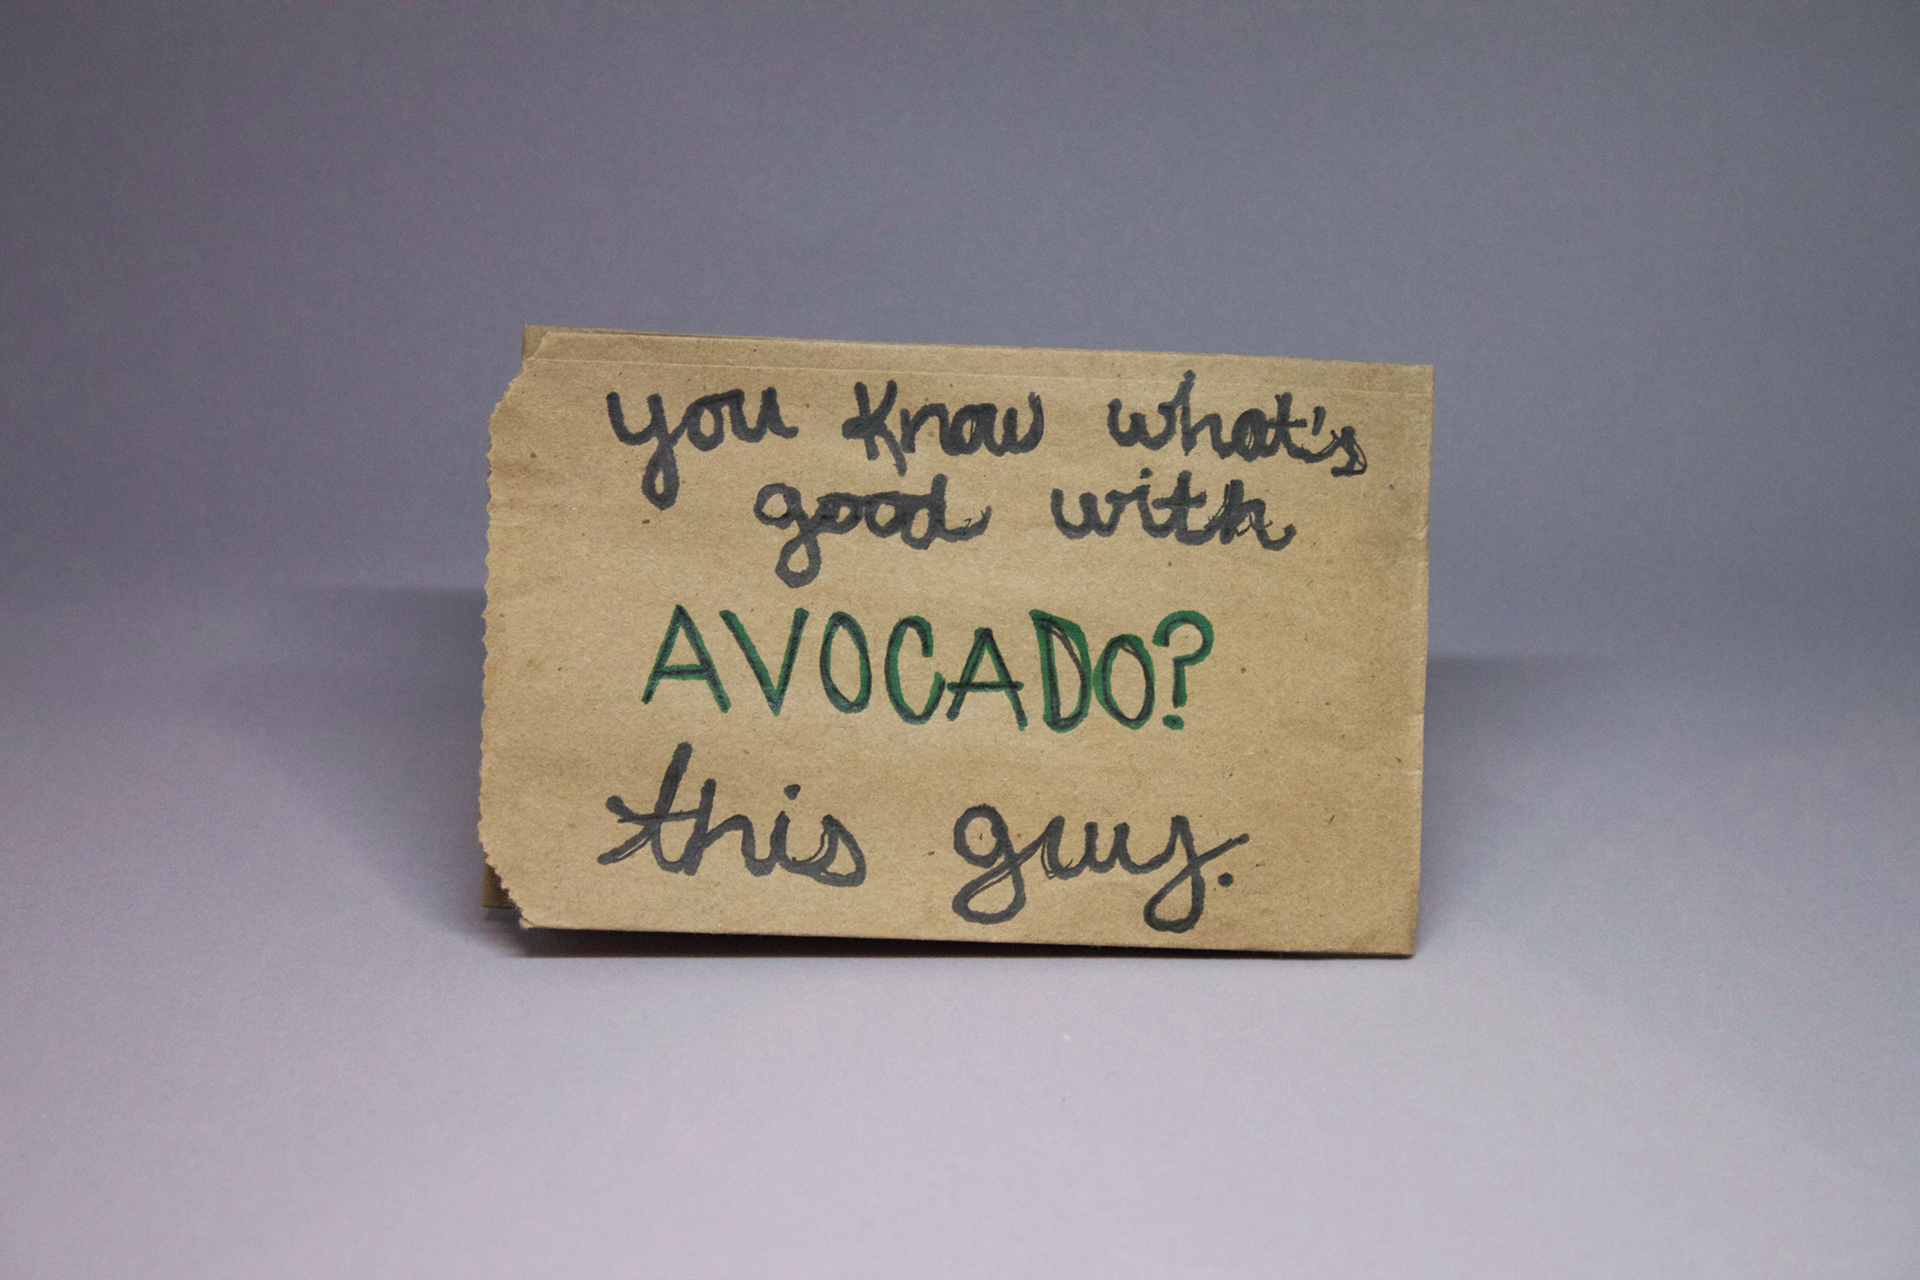 you know what's
good with
AVOCADO?
this guy.